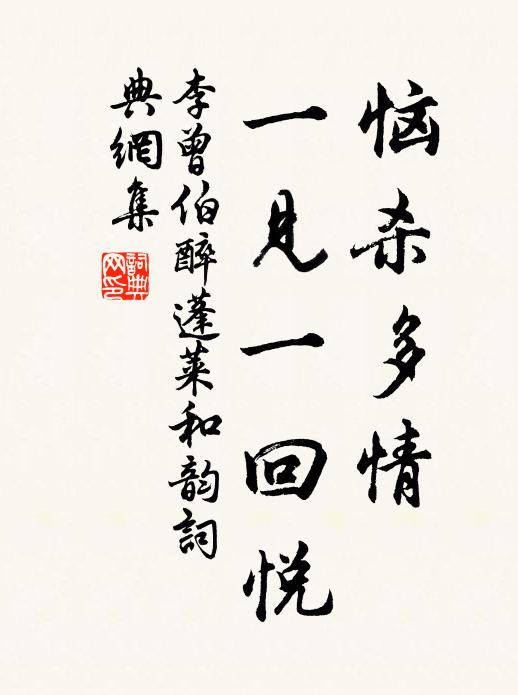 恼杀多情
一见一回悦
李曾伯醉蓬莱和韵詞
典網集
詞典网印